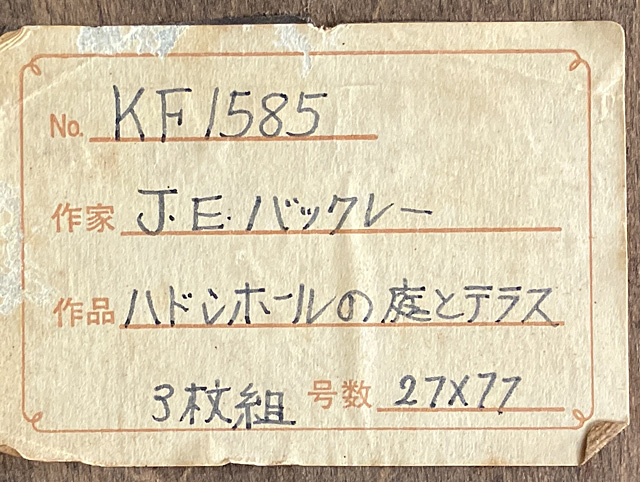 No. KF1585
作家 J.E.バックレー
作品 ハドンホールの庭とテラス
3枚組 号数 27X77